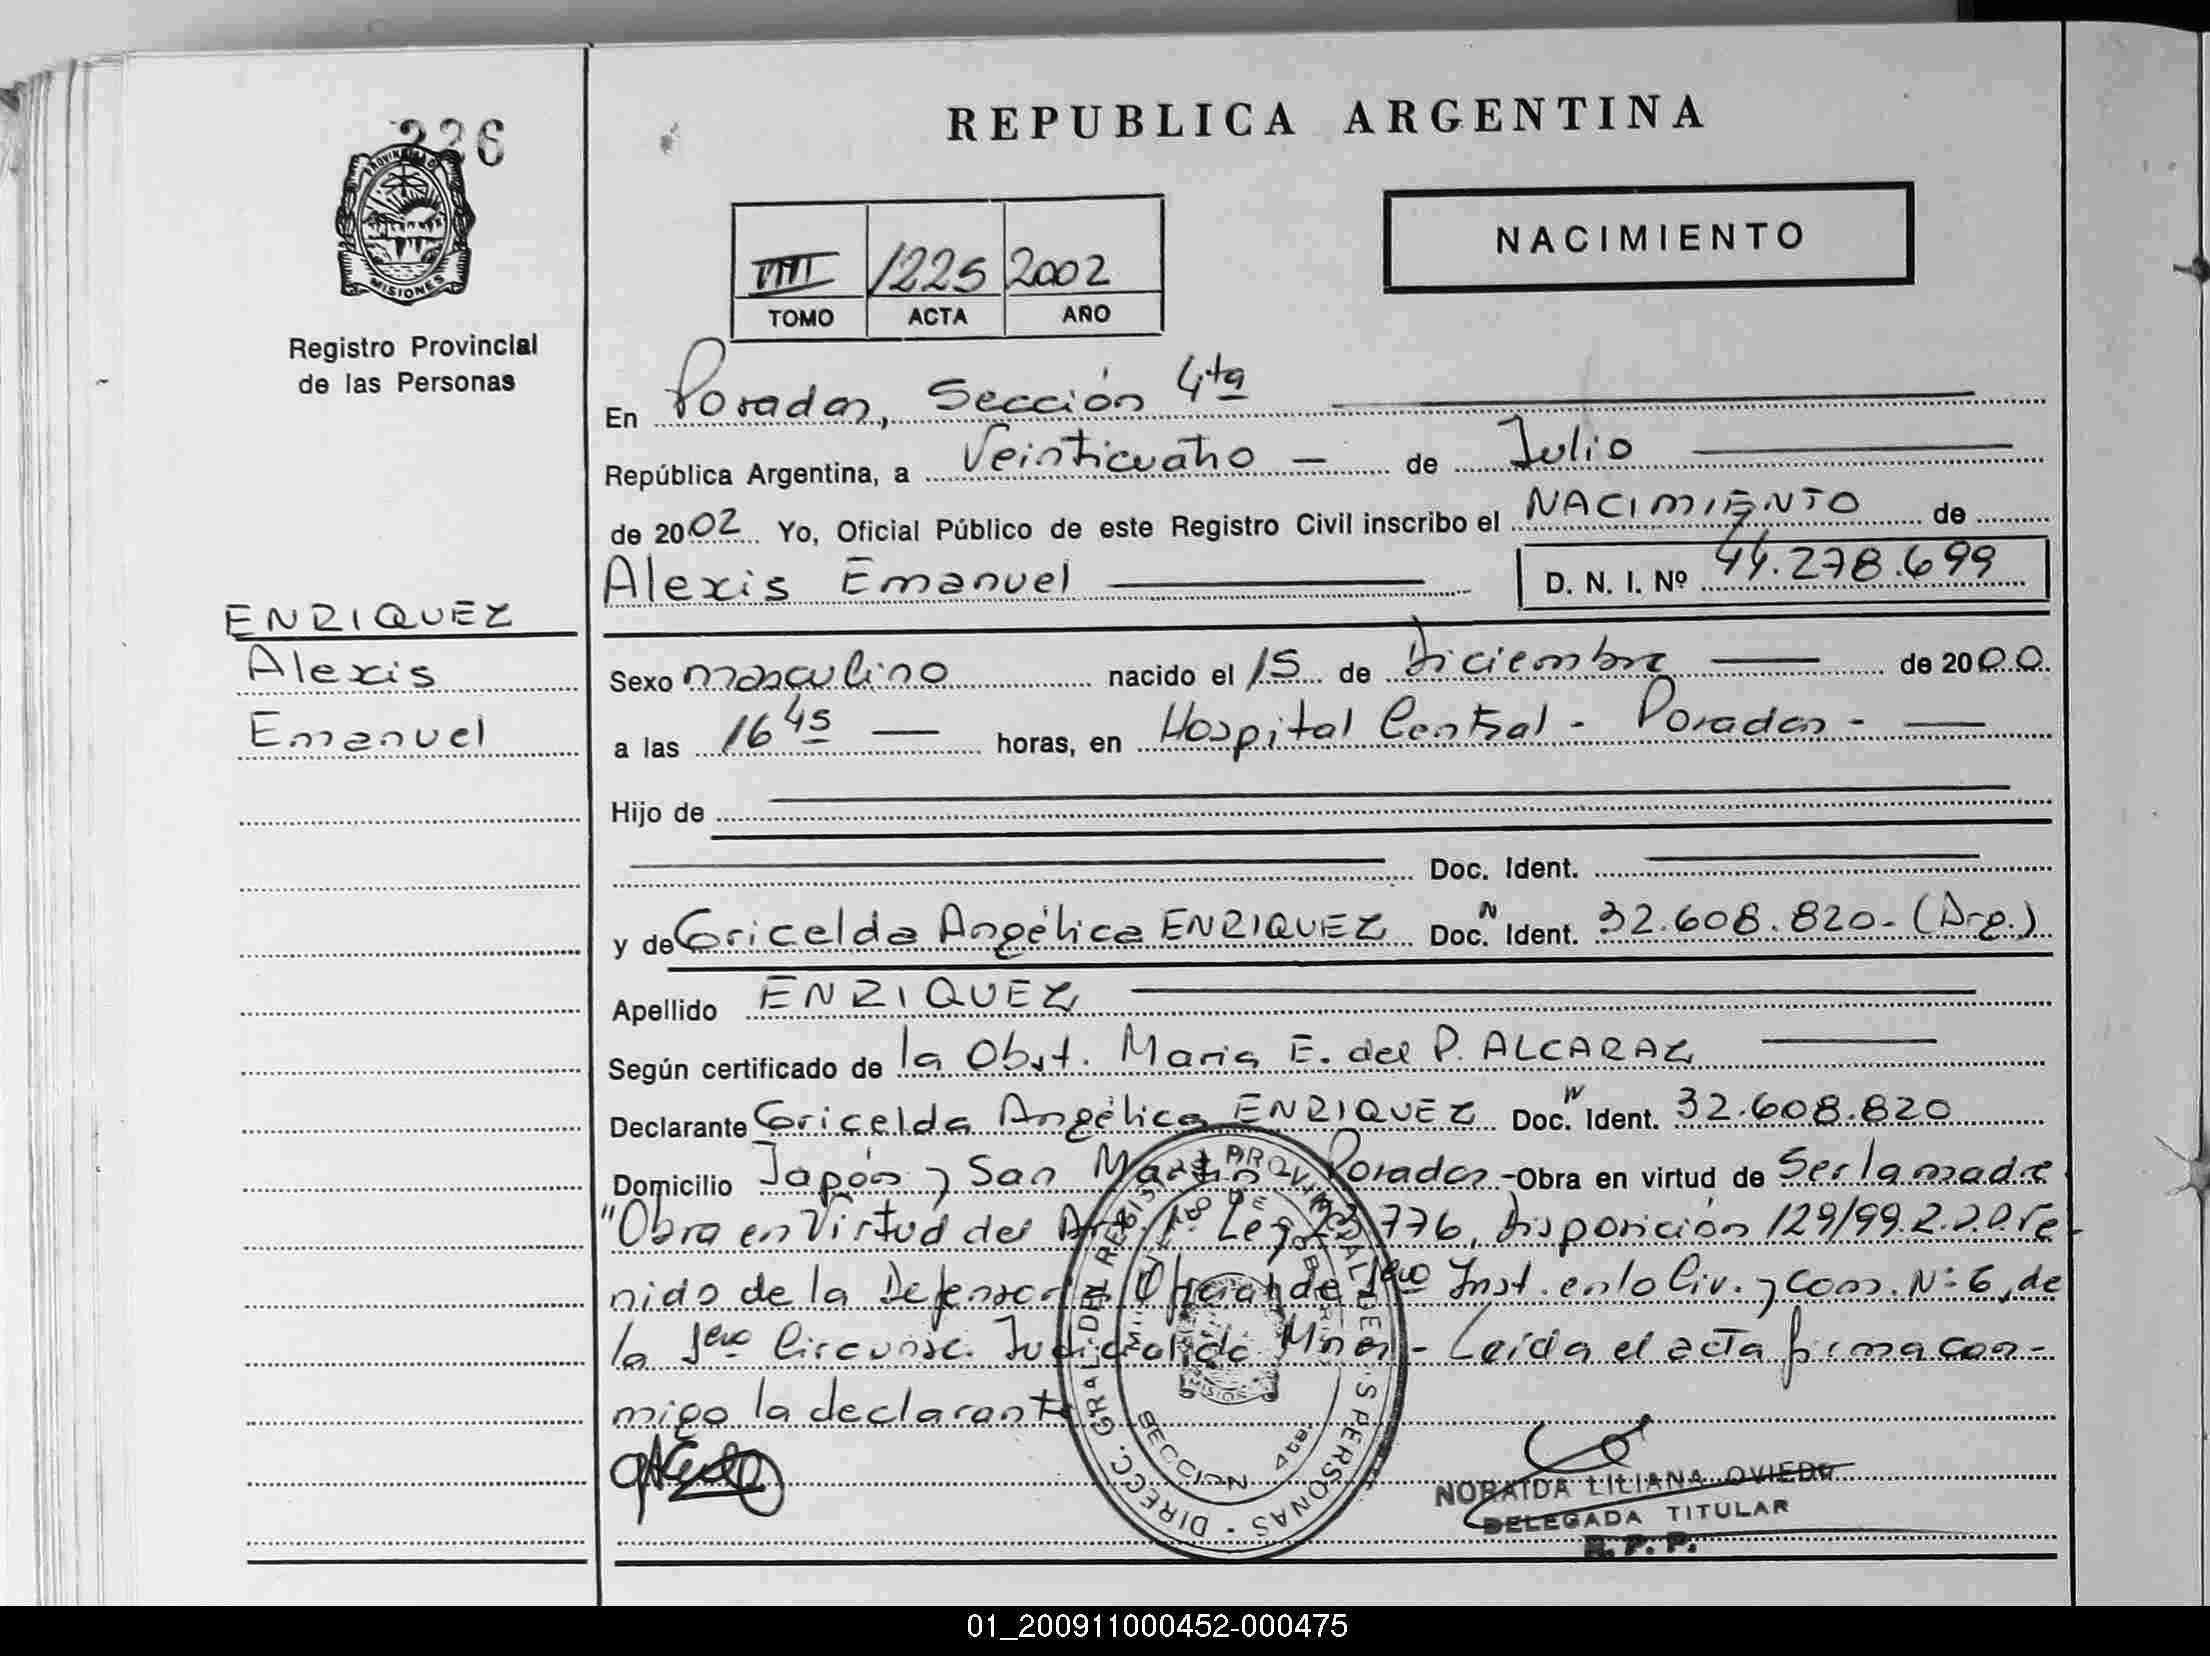 226
REPUBLICA ARGENTINA
PROVINCIA DE MISIONES
Registro Provincial
de las Personas
NACIMIENTO
VIII 1225 2002
TOMO ACTA AÑO
En Posadas, Sección 4ta
República Argentina, a Veinticuatro - de Julio
de 2002 Yo, Oficial Público de este Registro Civil inscribo el NACIMIENTO de
Alexis Emanuel D. N. I. Nº 44.278.699
ENRIQUEZ
Alexis
Emanuel
Sexo masculino nacido el 15 de Diciembre de 2000
a las 16 45 horas, en Hospital Central - Posadas -
Hijo de
Doc. Ident.
y de Gricelda Angélica ENRIQUEZ Doc. N Ident. 32.608.820 - (Arg.)
Apellido ENRIQUEZ
Según certificado de la Obst. Maria E. del P. ALCARAZ
Declarante Gricelda Angélica ENRIQUEZ Doc. N Ident. 32.608.820
Domicilio Japón y San Martin Posadas - Obra en virtud de Ser la madre
"Obra en Virtud del Art. 1º Ley 23.776, Disposición 129/99.2.2.0.Ve-
nido de la Defensoria Oficial de 1era Inst. en lo Civ. y Com. Nº 6, de
la 1era Circunsc. Judicial de Mnes - Leída el acta firma con-
migo la declarante
DIRECC. GRAL DEL REGISTRO PROVINCIAL DE LAS PERSONAS
MINISTERIO DE GOBIERNO
MISIONES
SECCION 4ta
NORAIDA LILIANA OVIEDO
DELEGADA TITULAR
R. P. P.
01_200911000452-000475